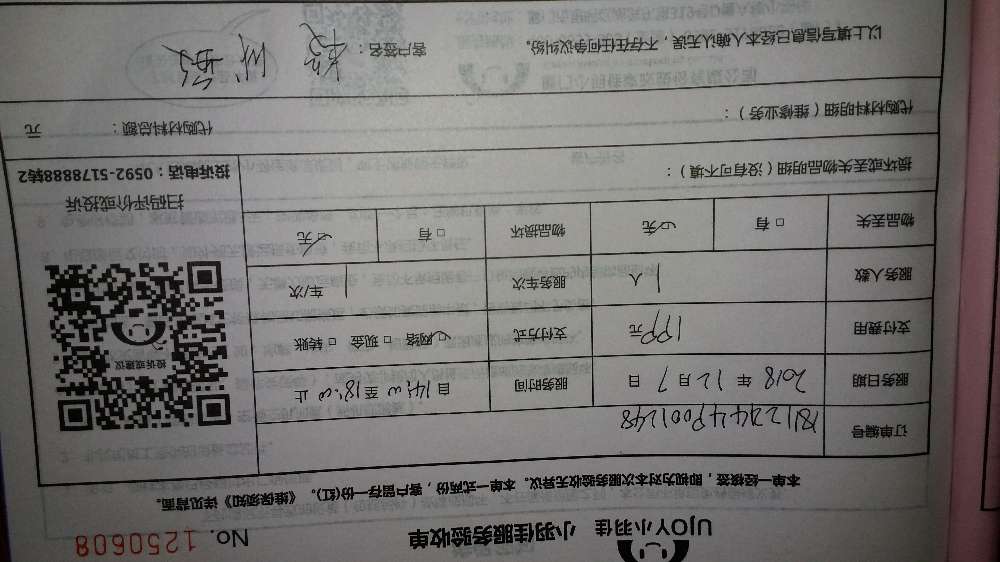 UJOY小羽佳 小羽佳服务验收单 No. 1250608
本单一经核签，即视为对本次服务验收无异议。本单一式两份，客户留存一份(红)。《维保须知》详见背面。
订单编号
服务日期 2018 年 12 月 7 日 服务时间 自 14:00 至 18:00 止
支付费用 199 元 支付方式 ☑网络 □现金 □转账
服务人数 1 人 服务车次 1 车/次
物品丢失 □有 ☑无 物品损坏 □有 ☑无
投诉或建议
扫码评价或投诉
投诉电话：0592-5178888转2
损坏或丢失物品明细（没有可不填）：
代购材料明细（维修业务）： 代购材料总额： 元
以上填写信息已经本人确认无误，不存在任何争议纠纷。 客户签名：